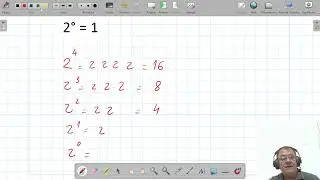 2° = 1
2⁴ = 2 2 2 2 = 16
2³ = 2 2 2 = 8
2² = 2 2 = 4
2¹ = 2
2⁰ =